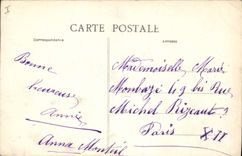 CARTE POSTALE
Correspondance
Adresse
Bonne
heureuse
Année
Anna Monteil
Mademoiselle Marie
119 bis Rue
Michel Bizeaut
Paris XII